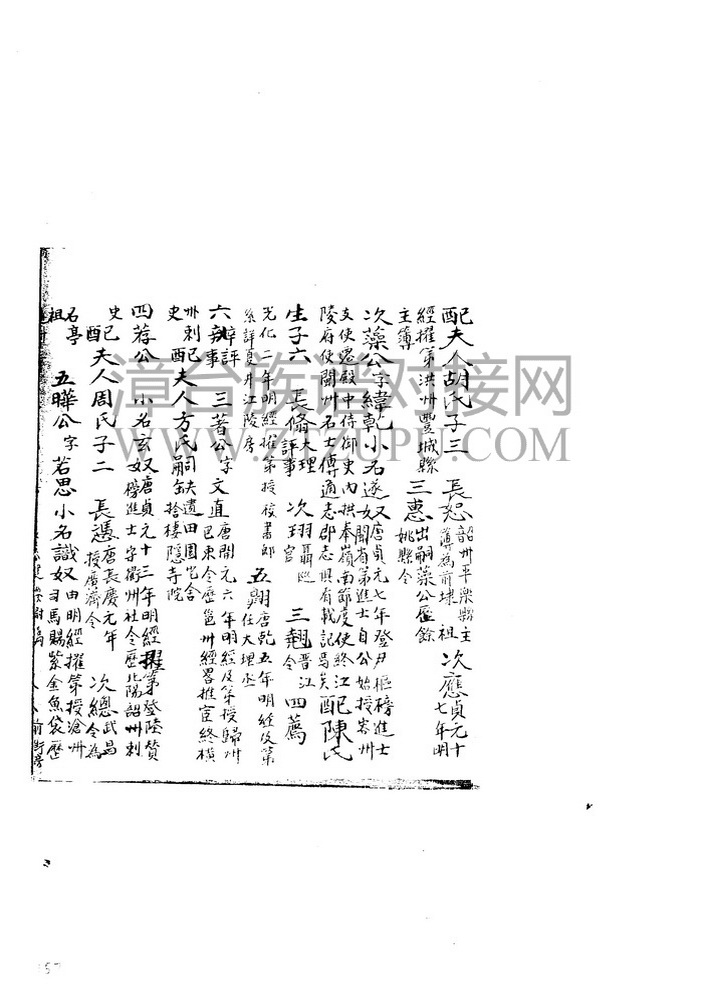 配夫人胡氏子三 長恕韶州平樂縣主簿為前埭祖 次應貞元十七年明
經擢第洪州豐城縣主簿 三惠出嗣藻公歷餘姚縣令
次藻公字緯乾小名遂奴唐貞元七年登尹樞榜進士閩省第進士自公始授容州
支使遷殿中侍御史內拱奉嶺南節度使終江陵府使閩州名士傳通志郡志俱有載記馬矣 配陳氏
生子六 長脩大理評事 次羽 三翹晉江令 四薦
光化二年明經擢第授校書郎 五翶唐乾五年明經及第任大理丞
六辦評事 三著公字文直唐開元六年明經及第授歸州巴東令歷邕州經畧推官終橫
州刺史 配夫人方氏嗣缺遺田園宅舍捨棲隱寺院
四荐公 小名玄奴唐貞元十三年明經擢第登陸贄榜進士字衢州社令歷北陽韶州刺
史 配夫人周氏子二 長憑唐長慶元年授廣濟令 次總武昌令為
名亭祖 五曄公字若思小名識奴由明經擢第授滄州司馬賜紫金魚袋歷
漳台族谱对接网
WWW.ZTZUPU.COM
157